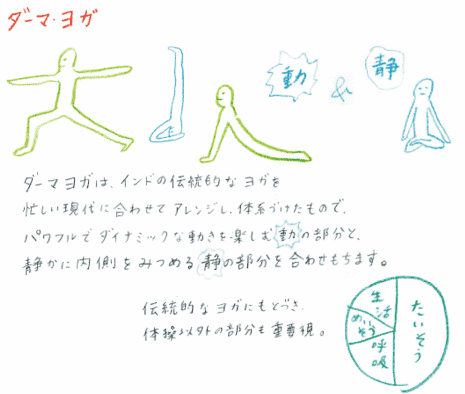 ダーマ・ヨガ
動 & 静
ダーマヨガは、インドの伝統的なヨガを
忙しい現代に合わせてアレンジし、体系づけたもので、
パワフルでダイナミックな動きを楽しむ動の部分と、
静かに内側をみつめる静の部分を合わせもちます。
伝統的なヨガにもとづき、
体操以外の部分も重要視。
生活
めいそう
呼吸
たいそう